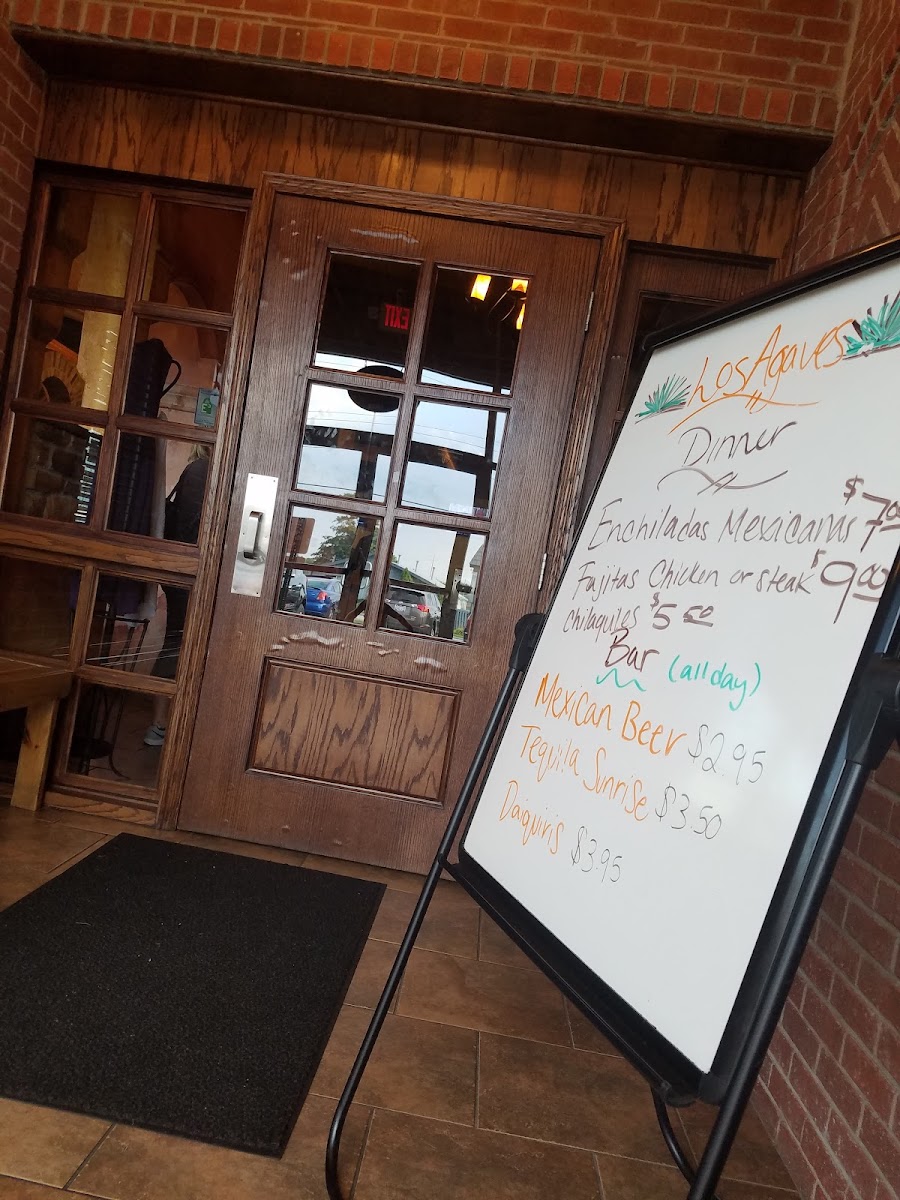 EXIT
Los Agaves
Dinner
Enchiladas Mexicanas $7.00
Fajitas Chicken or steak $9.00
chilaquiles $5.50
Bar (all day)
Mexican Beer $2.95
Tequila Sunrise $3.50
Daiquiris $3.95